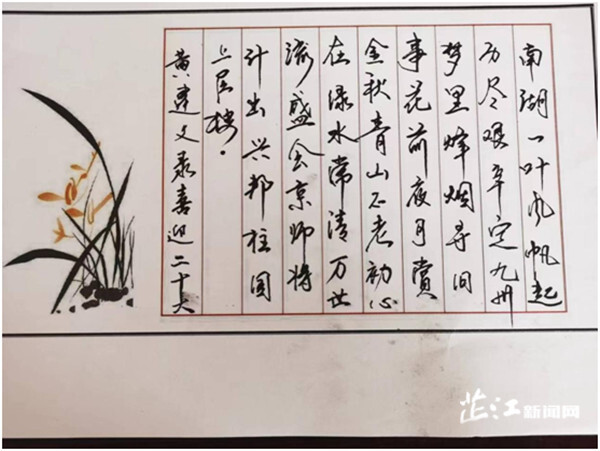 南湖一叶风帆起
历尽艰辛定九州
梦里烽烟寻旧
事花前夜月赏
金秋青山不老初心
在绿水常清万世
流盛会京师将
计出兴邦柱国
上层楼。
黄建文录喜迎二十大
芷江新闻网